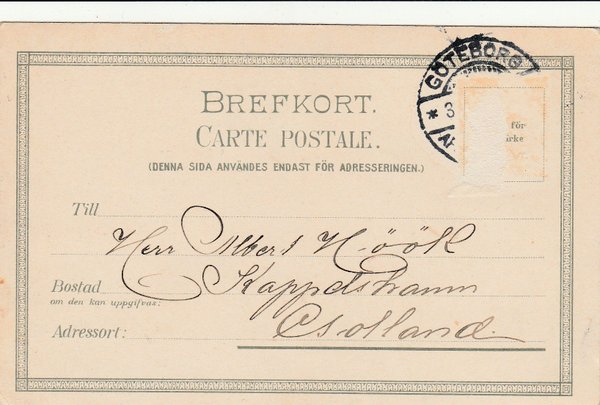 GÖTEBORG
* 3
för
ärke
BREFKORT.
CARTE POSTALE.
(DENNA SIDA ANVÄNDES ENDAST FÖR ADRESSERINGEN.)
Till
Herr Albert Höök
Bostad Kappelshamn
om den kan uppgifvas:
Adressort: Gotland.